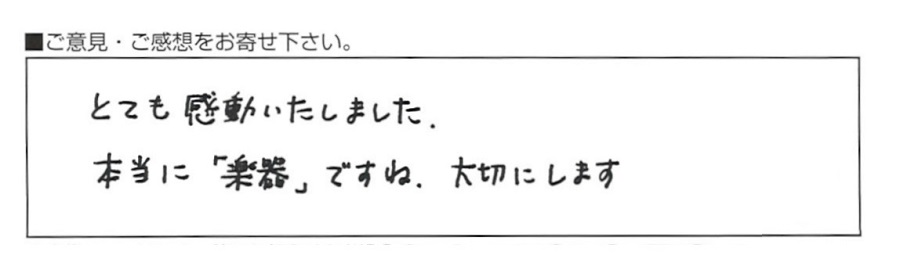 ■ご意見・ご感想をお寄せ下さい。
とても感動いたしました.
本当に「楽器」ですね. 大切にします